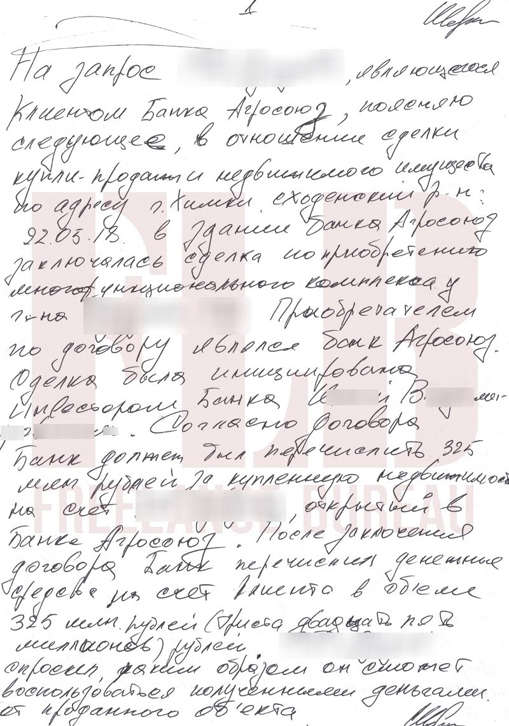 1
На запрос , являющегося
Клиентом Банка Агросоюз, поясняю
следующее, в отношении сделки
купли-продажи недвижимого имущества
по адресу г. Химки. сходенский р-н:
22.05.18. в здании Банка Агросоюз
заключалась сделка по приобретению
многофункционального комплекса у
г-на Приобретателем
по договору являлся банк Агросоюз.
Сделка была инициирована
Инвестором Банка
Согласно договора
Банк должен был перечислить 325
млн рублей за купленную недвижимость
на счет , открытый в
Банке Агросоюз. После заключения
договора Банк перечислил денежные
средства на счет клиента в объеме
325 млн. рублей (триста двадцать пять
миллионов) рублей
спросил, каким образом он сможет
воспользоваться полученными деньгами.
от проданного объекта
FLB
FREELANCE BUREAU